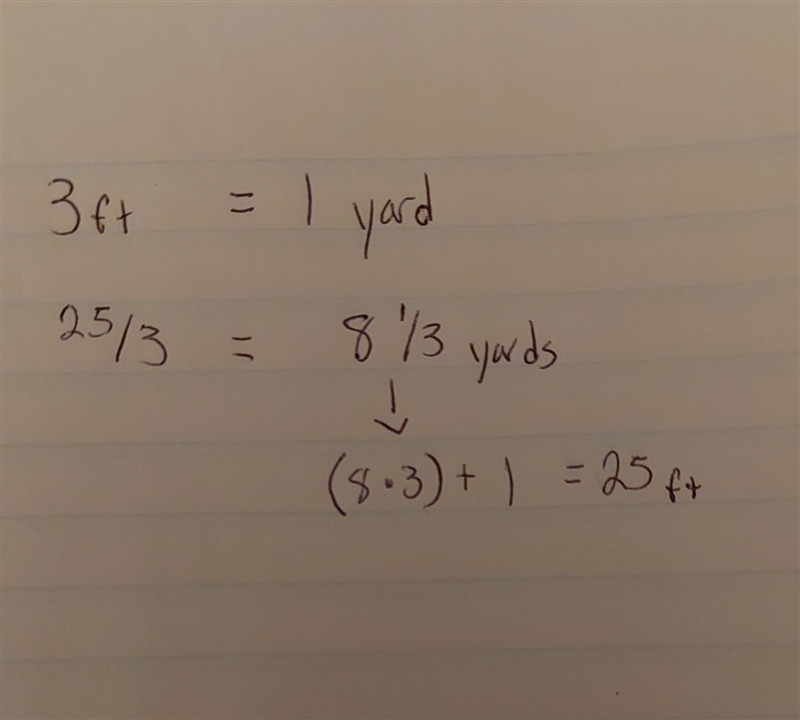 3 ft = 1 yard
25/3 = 8 1/3 yards
↓
(8·3) + 1 = 25 ft